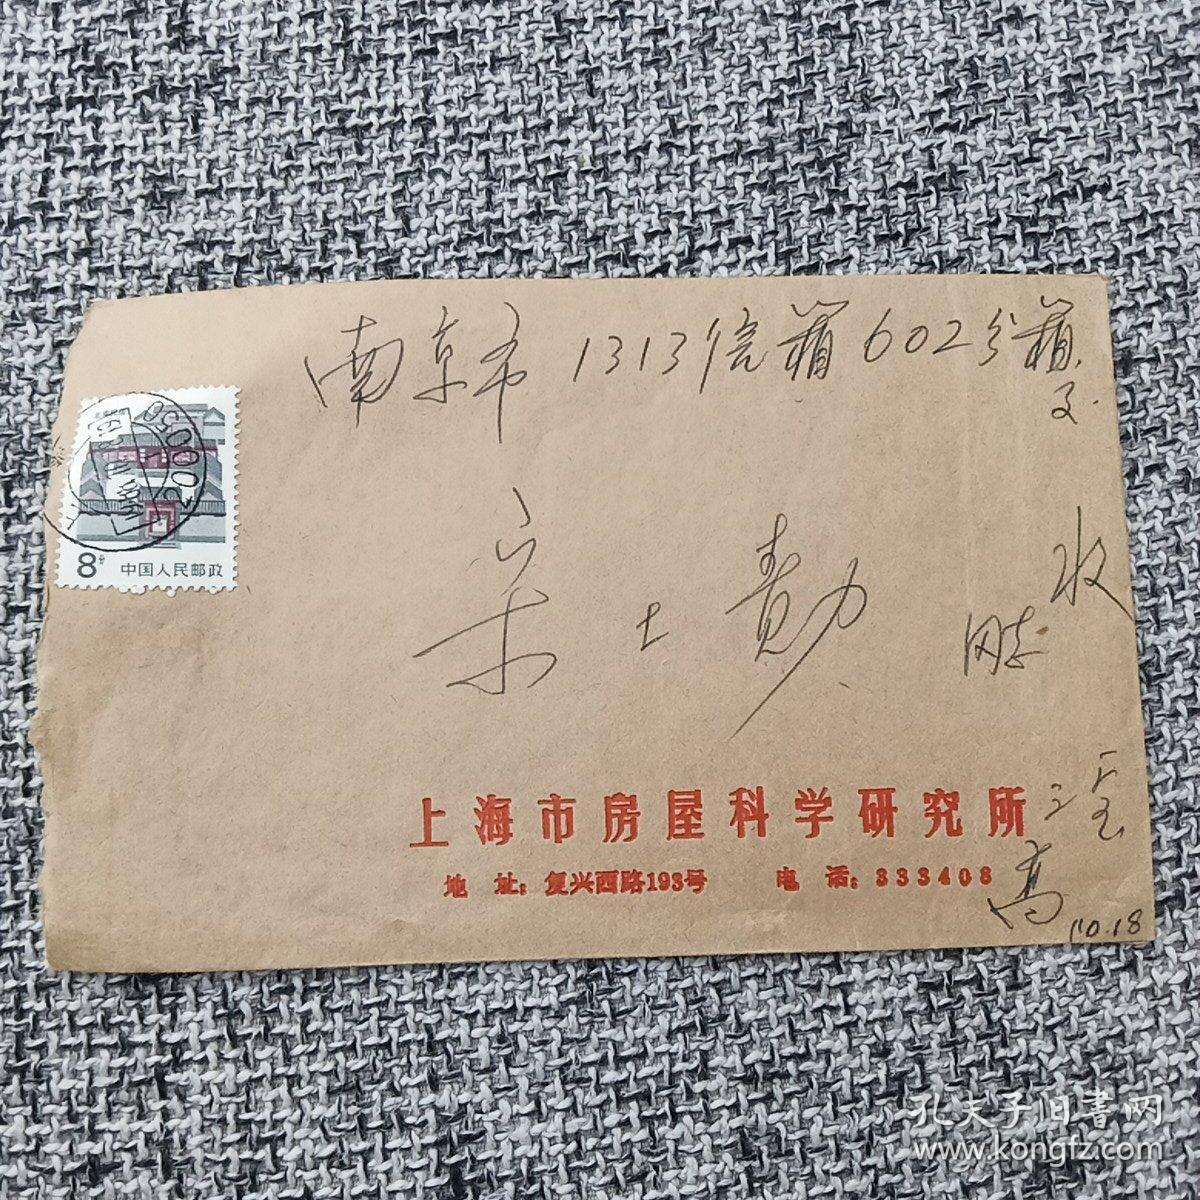 南京市1313信箱602分箱
宋士勤
同志
收
8分 中国人民邮政
上海市房屋科学研究所
地 址：复兴西路193号 电 话：333408
高
10.18
孔夫子旧書网
www.kongfz.com